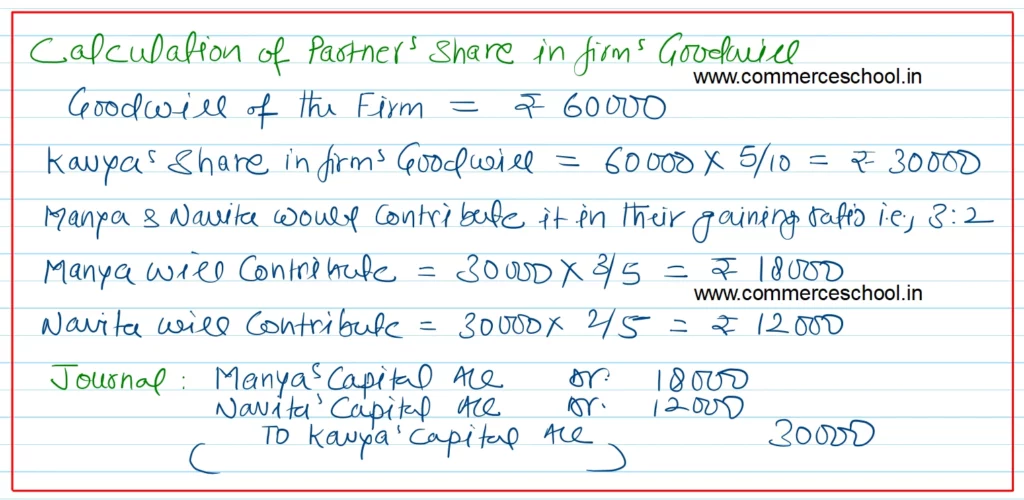 Calculation of Partner's Share in firm's Goodwill
www.commerceschool.in
Goodwill of the Firm = ₹ 60000
Kavya's Share in firm's Goodwill = 60000 × 5/10 = ₹ 30000
Manya & Navita would Contribute it in their gaining ratio i.e., 3:2
Manya will Contribute = 30000 × 3/5 = ₹ 18000
www.commerceschool.in
Navita will Contribute = 30000 × 2/5 = ₹ 12000
Journal : Manya's Capital A/c Dr. 18000
Navita's Capital A/c Dr. 12000
To Kavya's Capital A/c 30000